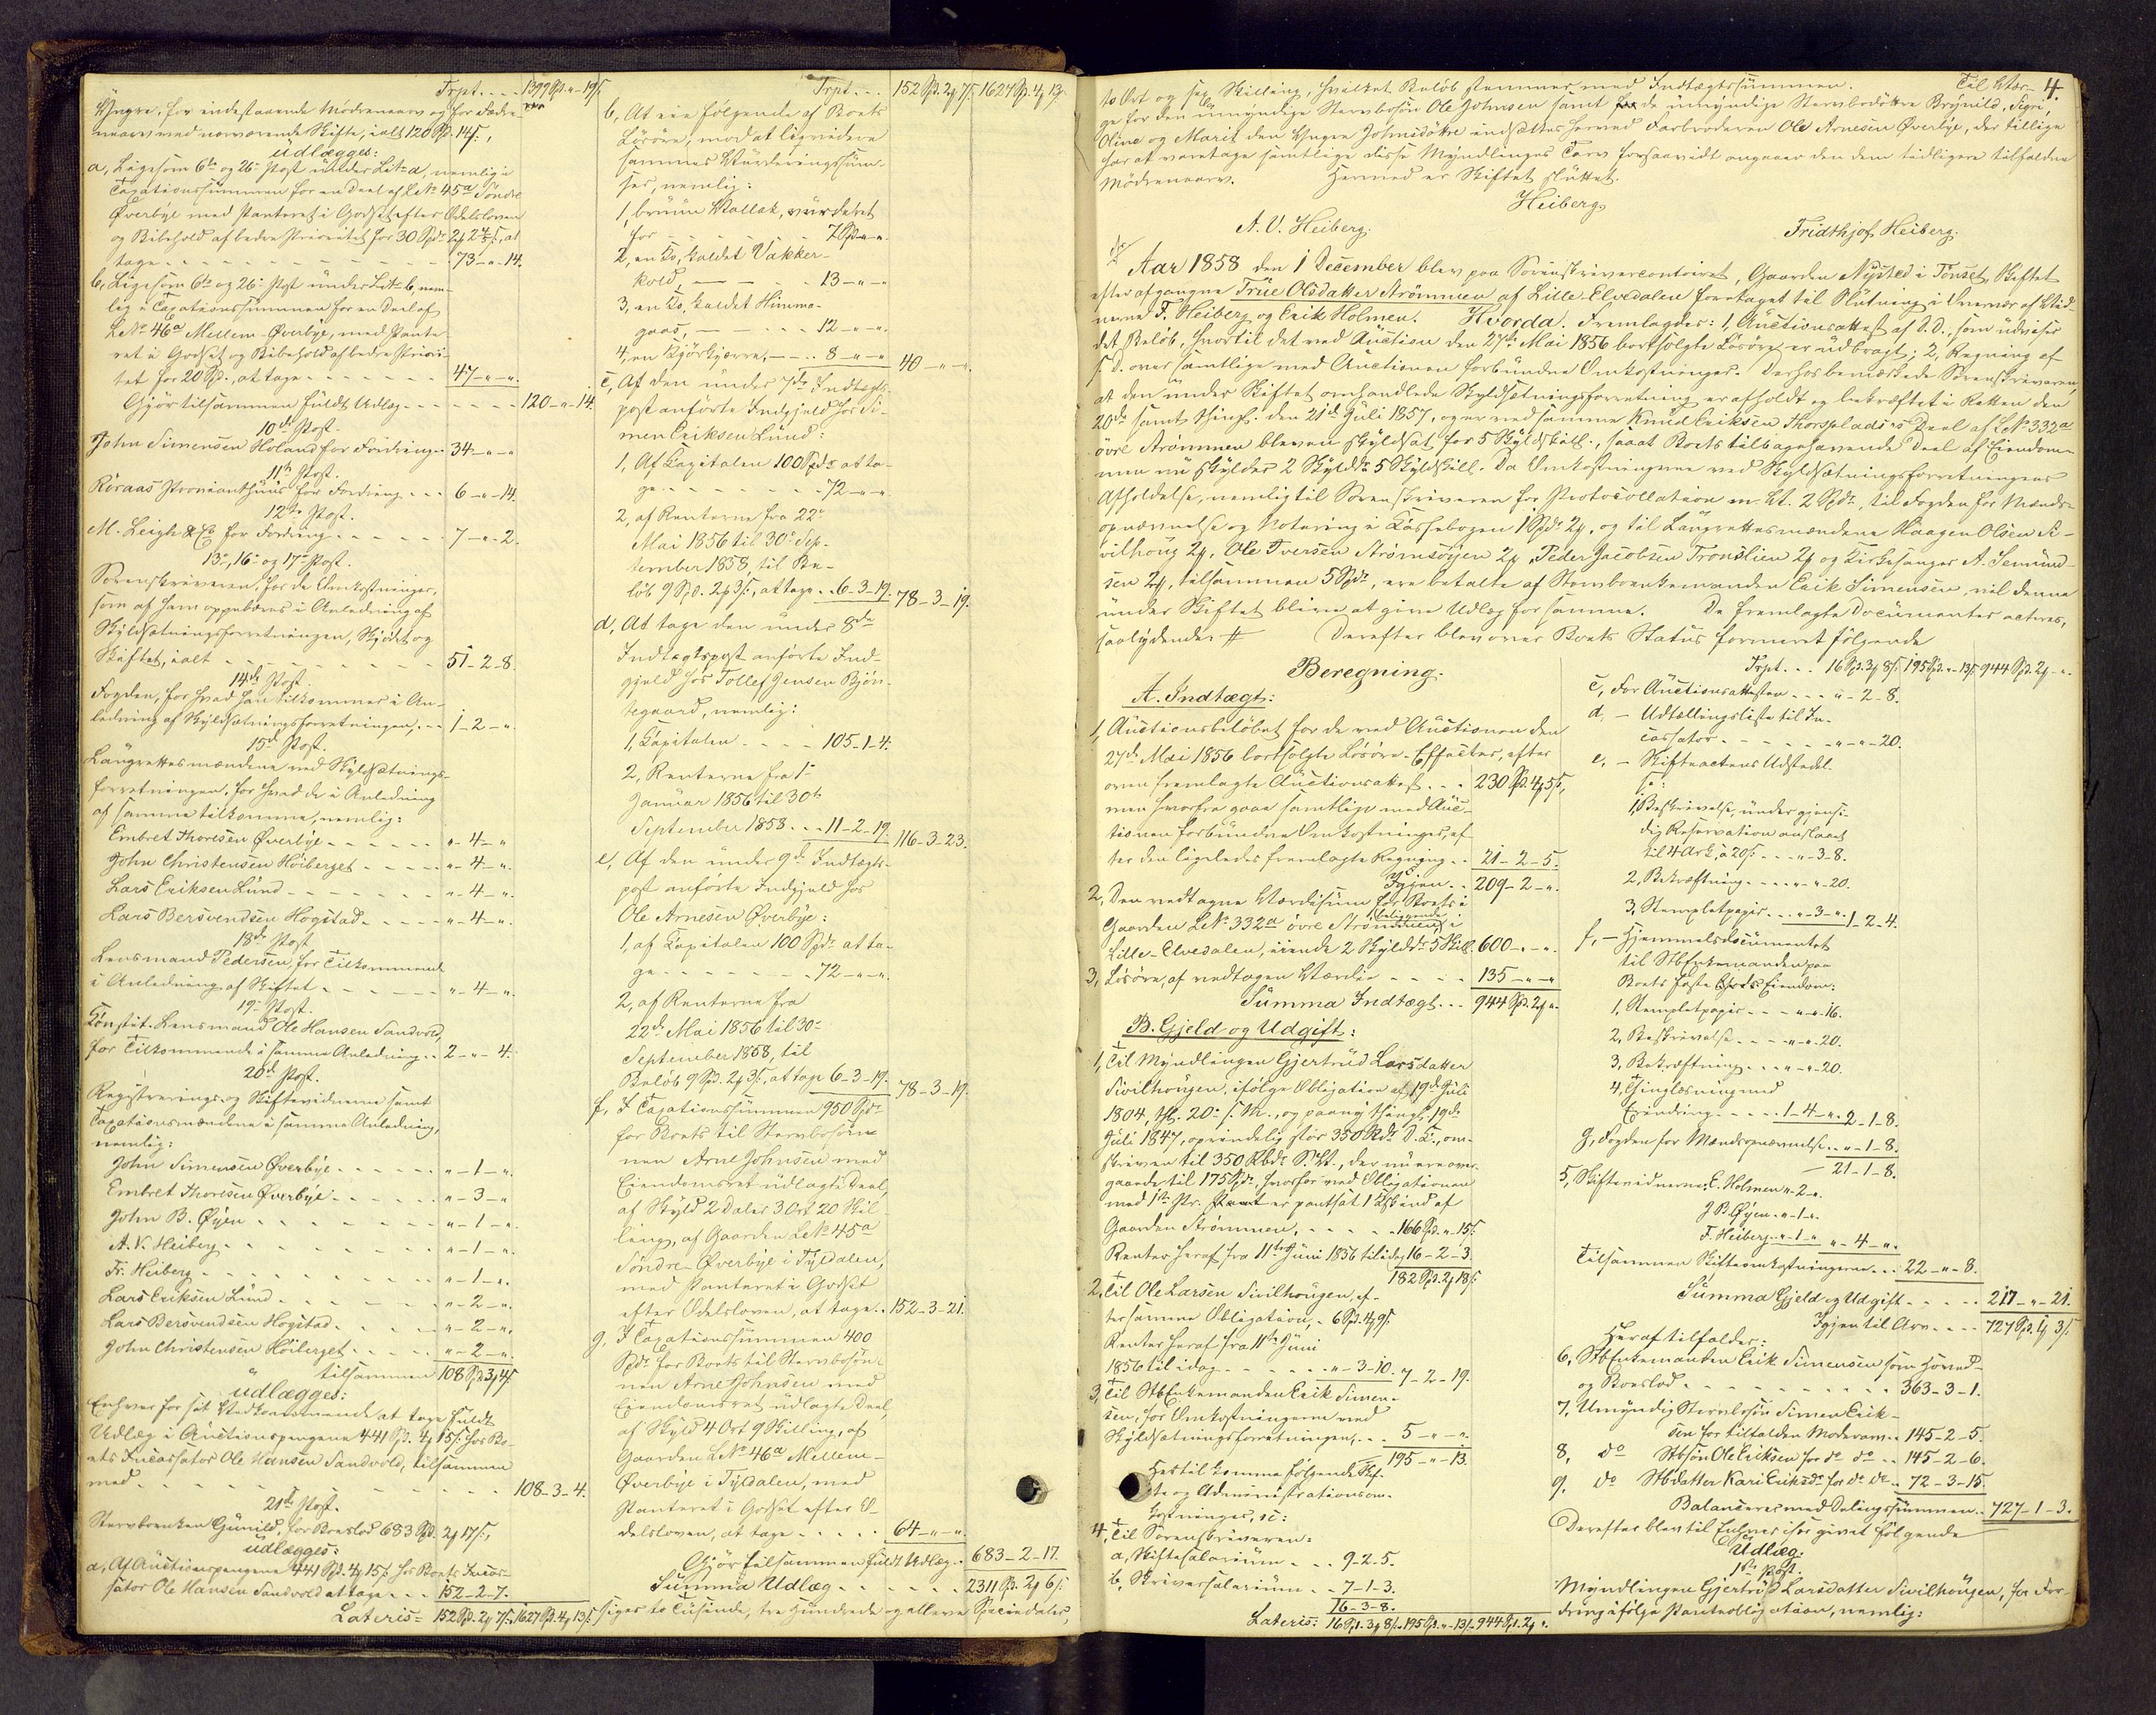 Trpt. . . . 1399 Spd. „ - 19ß
Yngre, for indestaaende Mødrenearv og for Fædre-
nearv ved nærværende Skifte, ialt 120 Spd. 14ß.,
udlægges:
a, Ligesom 6te og 26de Post under Litr a, nemlig i
Taxationssummen for en Deel af LNo 45a Søndre
Øverbye med Panteret i Godset efter Odelsloven
og Bibehold af bedre Prioritet for 30 Spd. 2 ort 2 4/5ß., at
tage - - - 73 - „ - 14.
b, Ligesom 6te og 26de Post under Litr b, nem-
lig i Taxationssummen for en Deel af
LNo 46a Mellem-Øverbye, med Pante-
ret i Godset og Bibehold af bedre Priori-
tet for 20 Spd., at tage - - - 47 - „ - „.
Gjør tilsammen fuldt Udlæg - - - 120 - „ - 14.
10de Post.
John Simensen Holand for Fordring - 34 - „ - „
11te Post.
Røraas Provianthuus for Fordring - - - 6 - „ - 14.
12te Post.
M. Leigh & Co for Fordring - - - 7 - „ - 2.
13de, 16de og 17de Post.
Sorenskriveren, for de Omkostninger,
som af ham oppebæres i Anledning af
Skyldsætningsforretningen, Skjødet og
Skiftet, ialt - - - 51 - 2 - 8.
14de Post.
Fogden, for hvad han tilkommer i An-
ledning af Skyldsætningsforretningen, - - 1 - 2 - „.
15de Post.
Laugrettesmændene ved Skyldsætnings-
forretningen, for hvad de i Anledning
af samme tilkomme, nemlig:
Embret Thoresen Øverbye - - - „ - 4 - „
John Christensen Høiberget - - - „ - 4 - „.
Lars Eriksen Lund - - - „ - 4 - „.
Lars Bersvendsen Hogstad - - - „ - 4 - „.
18de Post
Lensmand Pedersen, for Tilkommende
i Anledning af Skiftet - - - „ - 4 - „.
19de Post.
Konstit. Lensmand Ole Hansen Sandvold,
for Tilkommende i samme Anledning - - 2 - „ - 4.
20de Post.
Registrerings- og Skiftevidnerne samt
Taxationsmændene i samme Anledning,
nemlig:
John Simensen Øverbye - - - „ - 1 - „.
Embret Thoresen Øverbye - - - „ - 3 - „
John B. Øyen - - - „ - 1 - „.
A. V. Heiberg - - - „ - 1 - „.
Fr. Heiberg - - - „ - 1 - „.
Lars Eriksen Lund - - - „ - 2 - „.
Lars Bersvendsen Hogstad - - - „ - 2 - „.
John Christensen Høiberget - - - „ - 2 - „.
tilsammen 108 Spd. 3 ort 4ß
udlægges:
Enhver for sit Vedkommende at tage fuldt
Udlæg i Auctionspengene 441 Spd. 4 ort 15ß hos Bo-
ets Incassator Ole Hansen Sandvold, tilsammen
med - - - 108 - 3 - 4.
21de Post.
Stervboenken Gunild, for Boeslod 683 Spd. 2 ort 17ß.,
udlægges:
a, Af Auctionspengene 441 Spd. 4 ort 15ß hos Boets Incas-
sator Ole Hansen Sandvold at tage - - - 152 - 2 - 7.
Lateris: 152 Spd. 2 ort 7ß. 1627 Spd. 4 ort 13ß.
Trpt. . . 152 Spd. 2 ort 7ß. 1627 Spd. 4 ort 13ß
b, At eie følgende af Boets
Løsøre, mod at liqvidere
sammes Vurderingssum-
mer, nemlig:
1, bruun Vallak, vurderet
for - - - 7 Spd - „ - „.
2, en Ko, kaldet Vakker-
kold, - - - 13 - „ - „
3, en Ko, kaldet Himma-
gaas, - - - 12 - „ - „.
4, en Kjørekjærre, - - - 8 - „ - „ 40 - „ - „.
c, Af den under 7de Indtægts-
post anførte Indgjeld hos Si-
men Eriksen Lund:
1, Af Capitalen 100 Spdr at ta-
ge - - - 72 - „ - „.
2, af Renterne fra 22de
Mai 1856 til 30te Sep-
tember 1858, til Be-
løb 9 Spd. 2 ort 3ß., at tage - 6 - 3 - 19. 78 - 3 - 19.
d, At tage den under 8de
Indtægtspost anførte Ind-
gjeld hos Tollef Jensen Bjøn-
tegaard, nemlig:
1, Capitalen - - - 105 - 1 - 4.
2, Renterne fra 1ste
Januar 1856 til 30te
September 1858 - - 11 - 2 - 19. 116 - 3 - 23.
e, Af den under 9de Indtægts-
post anførte Indgjeld hos
Ole Arnesen Øverbye:
1, af Capitalen 100 Spdr at ta-
ge - - - 72 - „ - „.
2, af Renterne fra
22de Mai 1856 til 30te
September 1858, til
Beløb 9 Spd. 2 ort 3ß., at tage 6 - 3 - 19. 78 - 3 - 19.
f, I Taxationssummen 950 Spdr
for Boets til Stervbosøn-
nen Arne Johnsen med
Eiendomsret udlagte Deel,
af Skyld 2 Daler 3 Ort 20 Skil-
ling, af Gaarden LNo 45a
Søndre-Øverbye i Tyldalen,
med Panteret i Godset
efter Odelsloven, at tage - 152 - 3 - 21.
g, I Taxationssummen 400
Spdr for Boets til Stervbosøn-
nen Arne Johnsen med
Eiendomsret udlagte Deel,
af Skyld 4 Ort 9 Skilling, af
Gaarden LNo 46a Mellem-
Øverbye i Tyldalen, med
Panteret i Godset efter O-
delsloven, at tage - - - 64 - „ - „.
Gjør tilsammen fuldt Udlæg - 683 - 2 - 17.
Summa Udlæg - - - 2311 Spd. 2 ort 6ß.
siger to Tusinde, tre Hundrede og elleve Speciedaler,
4.
to Ort og sex Skilling, hvilket Beløb stemmer med Indtægtssummen. Til Vær-
ge for den umyndige Stervbosøn Ole Johnsen samt for de umyndige Stervbodøttre Brynild, Sigri,
Oline og Marit den Yngre Johnsdøttre indsættes herved Farbroderen Ole Arnesen Øverbye, der tillige
har at varetage samtlige disse Myndlinges Tarv forsaavidt angaaer den dem tidligere tilfaldne
Mødrenearv. Hermed er Skiftet sluttet.
Heiberg
A. V. Heiberg. Fridthjof Heiberg.
Aar 1858 den 1 December blev paa Sorenskrivercontoiret, Gaarden Nysted i Tønset, Skiftet
efter afgangne Trüe Olsdatter Strømmen af Lille-Elvedalen foretaget til Slutning i Overvær af Vid-
nerne F. Heiberg og Erik Holmen. Hvorda. Fremlagdes: 1, Auctionsattest af D. D., som udviser
det Beløb, hvortil det ved Auction den 27de Mai 1856 bortsolgte Løsøre er udbragt; 2, Regning af
s. D. over samtlige med Auctionen forbundne Omkostninger. Derhos bemærkede Sorenskriveren,
at den under Skiftet omhandlede Skyldsætningsforretning er afholdt og bekræftet i Retten den
20de samt thingl. den 21de Juli 1857, og er ved samme Knud Eriksen Thorsplads's Deel af LNo 332a
øvre Strømmen bleven skyldsat for 5 Skyldskill., saaat Boets tilbagehavende Deel af Eiendom-
men nu skylder 2 Skyldd. 5 Skyldskill. Da Omkostningerne ved Skyldsætningsforretningens
Afholdelse, nemlig til Sorenskriveren for Protocollation m. V. 2 Spdr, til Fogden for Mænds-
opnævnelse og Notering i Cassebogen 1 Spd. 2 ort, og til Laugrettesmændene Haagen Olsen Si-
vilhoug 2 ort, Ole Iversen Strømsøyen 2 ort, Peder Jacobsen Tronslien 2 ort og Kirkesanger A. Semund-
sen 2 ort, tilsammen 5 Spdr, ere betalte af Stervboenkemanden Erik Simensen, vil denne
under Skiftet blive at give Udlæg for samme. De fremlagte Documenter acteres,
saalydende: # Derefter blev over Boets Status formeret følgende
Beregning.
A. Indtægt:
1, Auctionsbeløbet for de ved Auctionen den
27de Mai 1856 bortsolgte Løsøre-Effecter, efter
oven fremlagte Auctionsattest - - 230 Spd. 4 ort 5ß,
men hvorfra gaae samtlige med Auc-
tionen forbundne Omkostninger, ef-
ter den ligeledes fremlagte Regning - - 21 - 2 - 5.
Igjen - - 209 - 2 - „.
2, Den vedtagne Værdisum for Boets i
Gaarden LNo 332a øvre Strømmen, beliggende i
Lille-Elvedalen, eiende 2 Skyldd. 5 Skill. 600 - „ - „.
3, Løsøre, af vedtagen Værdie - - - 135 - „ - „
Summa Indtægt - - 944 Spd. 2 ort „.
B. Gjeld og Udgift:
1, Til Myndlingen Gjertrud Larsdatter
Sivilhougen, ifølge Obligation af 19de Juli
1804, thl. 20de s. M., og paany thingl. 19de
Juli 1847, oprindelig stor 350 Rdr D. C., om-
skreven til 350 Rbdr S. V., der nu ere over-
gaaede til 175 Spdr, hvorfor ved Obligationen
med 1ste Pr. Pant er pantsat 1 Skind af
Gaarden Strømmen, - - - 166 Spd. „ 15ß
Renter heraf fra 11te Juni 1856 til idag 16 - 2 - 3.
182 Spd. 2 ort 18ß
2, Til Ole Larsen Sivilhougen, ef-
ter samme Obligation, - 6 Spd. 4 ort 9ß.
Renter heraf fra 11te Juni
1856 til idag - - - „ - 3 - 10. 7 - 2 - 19.
3, Til StbEnkemanden Erik Simen-
sen, for Omkostningerne ved
Skyldsætningsforretningen, - - - 5 - „ - „.
195 - „ - 13.
Hertil komme følgende Skif-
te og Administrationsom-
kostninger, sc:
4, Til Sorenskriveren:
a, Skiftesalarium - - - 9 - 2 - 5.
b, Skriversalarium - - 7 - 1 - 3.
16 - 3 - 8.
Lateris: 16 Spd. 3 ort 8ß. 195 Spd. „ - 13ß. 944 Spd. 2 ort „.
Trpt. . . 16 Spd. 3 ort 8ß. 195 Spd. „ - 13ß. 944 Spd. 2 ort - „.
c, For Auctionsattesten - - - „ - 2 - 8.
d, - Udtællingsliste til In-
cassator - - - „ - „ - 20.
e, - Skifteactens Udstedel-
se:
1, Beskrivelse, under gjensi-
dig Reservation anslaaet
til 4 Ark, a 20ß. - - - „ - 3 - 8.
2, Bekræftning - - - „ - „ - 20.
3, Stempletpapir - - - „ - 3 - „. 1 - 2 - 4.
f, - Hjemmelsdocumentet
til StbEnkemanden paa
Boets faste Gods Eiendom:
1, Stempletpapir - - - „ - „ - 16.
2, Beskrivelse - - - „ - „ - 20.
3, Bekræftning - - - „ - „ - 20.
4, Thinglæsning med
Erindring - - - 1 - 4 - „. 2 - 1 - 8.
g, Fogden for Mændsopnævnelse - - „ - 1 - 8.
21 - 1 - 8.
5, Skiftevidnerne: E. Holmen „ - 2 - „.
J. B. Øyen - „ - 1 - „.
F. Heiberg - „ - 1 - „ „ - 4 - „.
Tilsammen Skifteomkostningerne - - 22 - „ - 8.
Summa Gjeld og Udgift - - - 217 - „ - 21.
Igjen til Arv - - - 727 Spd. 1 ort 3ß
Heraf tilfalder:
6, StbEnkemanden Erik Simensen som Hoved-
og Boeslod - - - 363 - 3 - 1.
7, Umyndig Stervbosøn Simen Erik-
sen for tilfalden Moderarv - - 145 - 2 - 5.
8, do Stbsøn Ole Eriksen for do do - - 145 - 2 - 6.
9, do Stbdatter Kari Eriksdr for do do - - 72 - 3 - 15.
Balancerer med Delingssummen - - 727 - 1 - 3.
Derefter blev til Enhver især givet følgende
Udlæg.
1ste Post.
Myndlingen Gjertrud Larsdatter Sivilhougen, for For-
dring ifølge Panteobligation, nemlig: